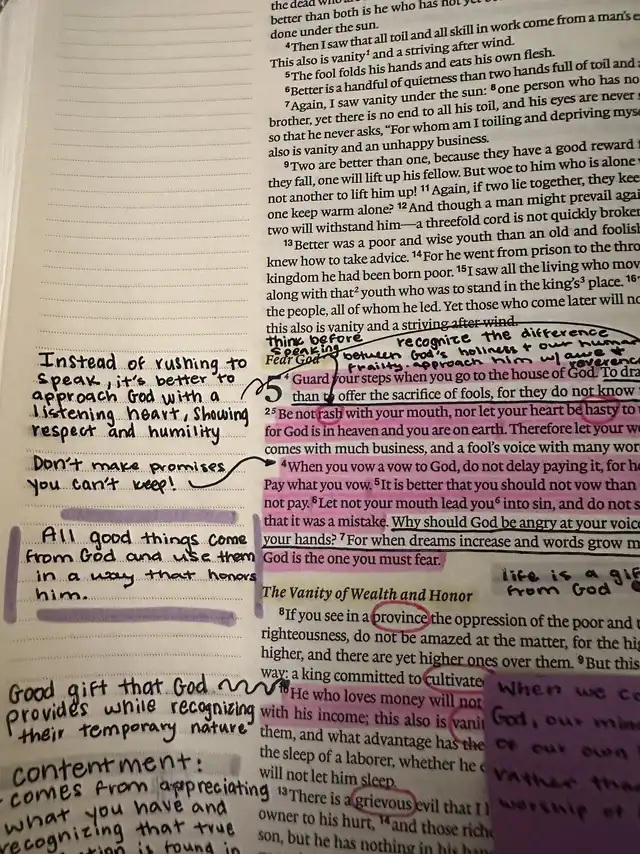 the dead who
better than both is he who has not yet
done under the sun.
4Then I saw that all toil and all skill in work come from a man's
This also is vanity1 and a striving after wind.
5The fool folds his hands and eats his own flesh.
6Better is a handful of quietness than two hands full of toil and
7Again, I saw vanity under the sun: 8one person who has no
brother, yet there is no end to all his toil, and his eyes are never
so that he never asks, "For whom am I toiling and depriving myse
also is vanity and an unhappy business.
9Two are better than one, because they have a good reward
they fall, one will lift up his fellow. But woe to him who is alone
not another to lift him up! 11Again, if two lie together, they kee
one keep warm alone? 12And though a man might prevail agai
two will withstand him—a threefold cord is not quickly broke
13Better was a poor and wise youth than an old and foolish
knew how to take advice. 14For he went from prison to the thro
kingdom he had been born poor. 15I saw all the living who mov
along with that2 youth who was to stand in the king's3 place. 16
the people, all of whom he led. Yet those who come later will no
this also is vanity and a striving after wind.
think before speaking
recognize the difference
between God's holiness + our human
frailty. approach him w/ awe +
reverence
Fear God
5 4 Guard your steps when you go to the house of God. To dra
than to offer the sacrifice of fools, for they do not know
25 Be not rash with your mouth, nor let your heart be hasty to
for God is in heaven and you are on earth. Therefore let your w
comes with much business, and a fool's voice with many wor
4When you vow a vow to God, do not delay paying it, for he
Pay what you vow. 5It is better that you should not vow than
not pay. 6Let not your mouth lead you6 into sin, and do not s
that it was a mistake. Why should God be angry at your voice
your hands? 7For when dreams increase and words grow m
God is the one you must fear.
Instead of rushing to
speak, it's better to
approach God with a
listening heart, showing
respect and humility
Don't make promises
you can't keep!
All good things come
from God and use them
in a way that honors
him.
life is a gif
from God
The Vanity of Wealth and Honor
8If you see in a province the oppression of the poor and
righteousness, do not be amazed at the matter, for the hig
higher, and there are yet higher ones over them. 9But this
way: a king committed to cultivate
10He who loves money will not
with his income; this also is vani
them, and what advantage has the
the sleep of a laborer, whether he
will not let him sleep.
13There is a grievous evil that I
owner to his hurt, 14and those rich
son, but he has nothing in his
Good gift that God
provides while recognizing
their temporary nature
contentment:
comes from appreciating
what you have and
recognizing that true
is found in
When we co
God, our min
of our own
rather tha
worship of